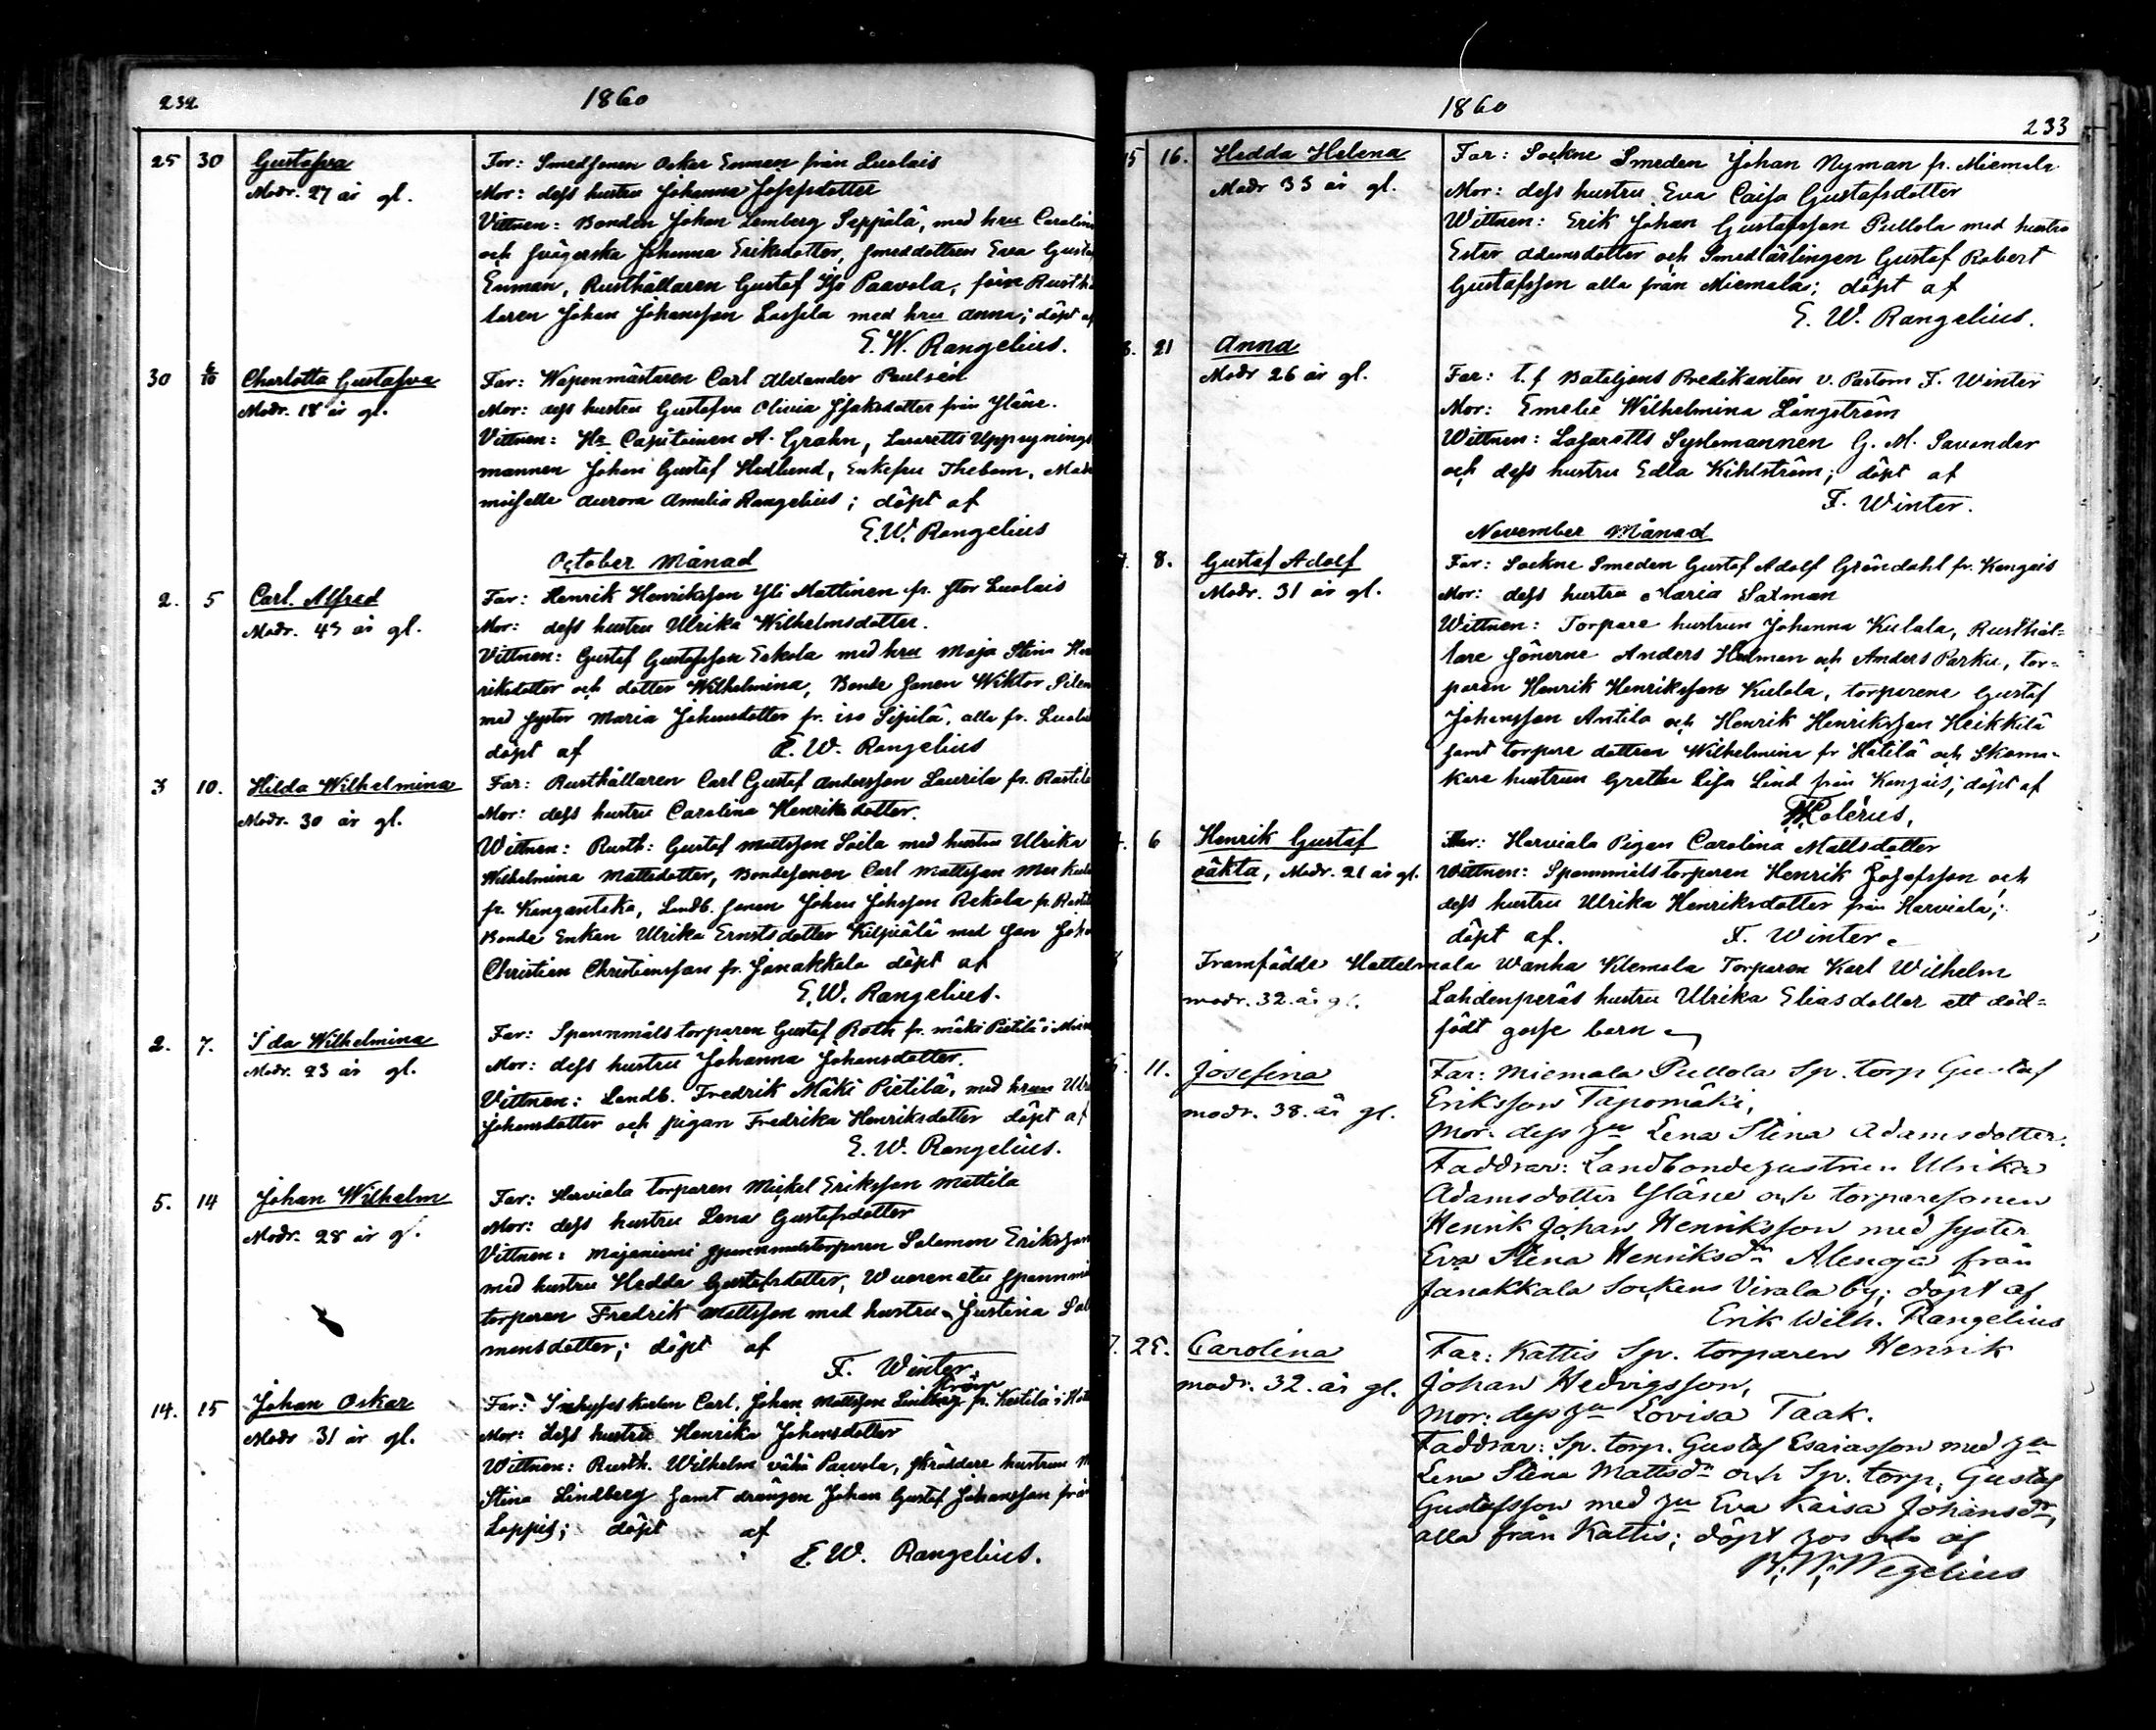 232
1860
25 30 Gustafva
Modr. 27 år gl.
Far: Smedsonen Oskar Enman från Luolais
Mor: dess hustru Johanna Josefsdotter
Vittnen: Bonden Johan Lemberg Seppälä, med hru Carolin
och svägerska Johanna Eriksdotter, smeddottren Eva Gustaf
Enman, Rusthållaren Gustaf Iso Paavola, förre Rusthå
laren Johan Johansson Lassila med hru Anna; döpt af
E. W. Rangelius.
30 6/10 Charlotta Gustafva
Modr. 18 år gl.
Far: Wapenmästaren Carl Alexander Paulsén
Mor: dess hustru Gustafva Olivia Isaksdotter från Yläne.
Vittnen: Hr Capitainen A. Grahn, Lazaretts Uppsynings
mannen Johan Gustaf Hedlund, Enkefru Thebom, Made
moiselle Aurora Amalia Rangelius; döpt af
E. W. Rangelius
October Månad
2. 5 Carl Alfred
Modr. 45 år gl.
Far: Henrik Henriksson Yli Mattinen fr. stor Luolais
Mor: dess hustru Ulrika Wilhelmsdotter.
Vittnen: Gustaf Gustafsson Eskola med hru Maja Stina Hen
riksdotter och dotter Wilhelmina, Bonde sonen Wiktor Silen
med syster Maria Johansdotter fr. iso Sipilä, alla fr. Luolai
döpt af E. W. Rangelius
3 10. Hilda Wilhelmina
Modr. 30 år gl.
Far: Rusthållaren Carl Gustaf Andersson Laurila fr. Rastila
Mor: dess hustru Carolina Henriksdotter.
Wittnen: Rusth: Gustaf Mattsson Soila med hustru Ulrika
Wilhelmina Mattsdotter, Bondesonen Carl Mattsson
fr. Kangantaka, Landb. sonen Johan Johsson Rekola fr. Rasti
Bonde Enkan Ulrika Ernstsdotter Kilpiälä med son Joh
Christian Christiansson fr. Janakkala döpt af
E. W. Rangelius.
2. 7. Ida Wilhelmina
Modr. 23 år gl.
Far: Spannmåls torparen Gustaf Roth fr. mäki Pietilä i
Mor: dess hustru Johanna Johansdotter.
Vittnen: Landb. Fredrik Mäki Pietilä, med hrun Ulr
Johansdotter och pigan Fredrika Henriksdotter döpt af
E. W. Rangelius.
5. 14 Johan Wilhelm
Modr. 28 år gl.
Far: Harviala torparen Mickel Eriksson Mattila
Mor: dess hustru Lena Gustafsdotter
Vittnen: Majaniemi spannmåls torparen Salomon Eriksson
med hustru Hedda Gustafsdotter, Wuorenalu spannmå
torparen Fredrik Mattsson med hustru Justina Sal
monsdotter; döpt af
F. Winter.
14. 15 Johan Oskar
Modr 31 år gl.
Far: Inhyses karlen Carl Johan Mattsson Lindberg Ström fr. Kastila i Hat
Mor: dess hustru Henrika Johansdotter
Wittnen: Rusth. Wilhelm vähä Paavola, skräddare hustrun M
Stina Lindberg samt drängen Johan Gustaf Johansson frå
Loppis; döpt af
E. W. Rangelius.
1860
233
15 16. Hedda Helena
Modr 33 år gl.
Far: Sockne Smeden Johan Nyman fr. Miemala
Mor: dess hustru Eva Caisa Gustafsdotter
Wittnen: Erik Johan Gustafsson Pullola med hustru
Ester Adamsdotter och Smedlärlingen Gustaf Robert
Gustafsson alla från Miemala; döpt af
E. W. Rangelius.
21 Anna
Modr 26 år gl.
Far: t. f Bataljons Predikanten v. Pastorn F. Winter
Mor: Emelie Wilhelmina Långström
Wittnen: Lazaretts Sysslomannen G. M. Savander
och dess hustru Edla Kihlström; döpt af
F. Winter.
November Månad
8. Gustaf Adolf
Modr. 31 år gl.
Far: Sockne Smeden Gustaf Adolf Gröndahl fr. Kangais
Mor: dess hustru Maria Salman
Wittnen: Torpare hustrun Johanna Kulala, Rusthål=
lare sönerne Anders Hedman och Anders Parku, tor=
paren Henrik Henriksson Kulala, torparena Gustaf
Johansson Antila och Henrik Henriksson Heikkilä
samt torpare dottren Wilhelmina fr Hätilä och Skoma=
kare hustrun Gretha Lisa Lind från Kangais; döpt af
Polérus.
6 Henrik Gustaf
oäkta, Modr. 21 år gl.
Mor: Harviala Pigan Carolina Mattsdotter
Vittnen: Spannmåls torparen Henrik Josefsson och
dess hustru Ulrika Henriksdotter från Harviala;
döpt af. F. Winter.
Framfödde Hattelmala Wanha Kiemola Torparen Karl Wilhelm
modr. 32 år gl.
Lahdenperäs hustru Ulrika Eliasdotter ett död=
födt gosse barn
11. Josefina
modr. 38. år gl.
Far: Miemala Pullola Sp. torp Gustaf
Eriksson Tapomäki,
Mor: dess hu Lena Stina Adamsdotter.
Faddrar: Landbondehustrun Ulrika
Adamsdotter Yläne och torparesonen
Henrik Johan Henriksson med syster
Eva Stina Henriksdr Alenoja från
Janakkala Sockens Virala by; döpt af
Erik Wilh. Rangelius
7. 25. Carolina
modr. 32. år gl.
Far: Kattis Sp. torparen Henrik
Johan Hedvigsson,
Mor: dess hu Lovisa Taak.
Faddrar: Sp. torp. Gustaf Esaiasson med hu
Lena Stina Mattsdr och Sp. torp. Gustaf
Gustafsson med hu Eva Kaisa Johansdr,
alla från Kattis; döpt hos och af
W. Wegelius